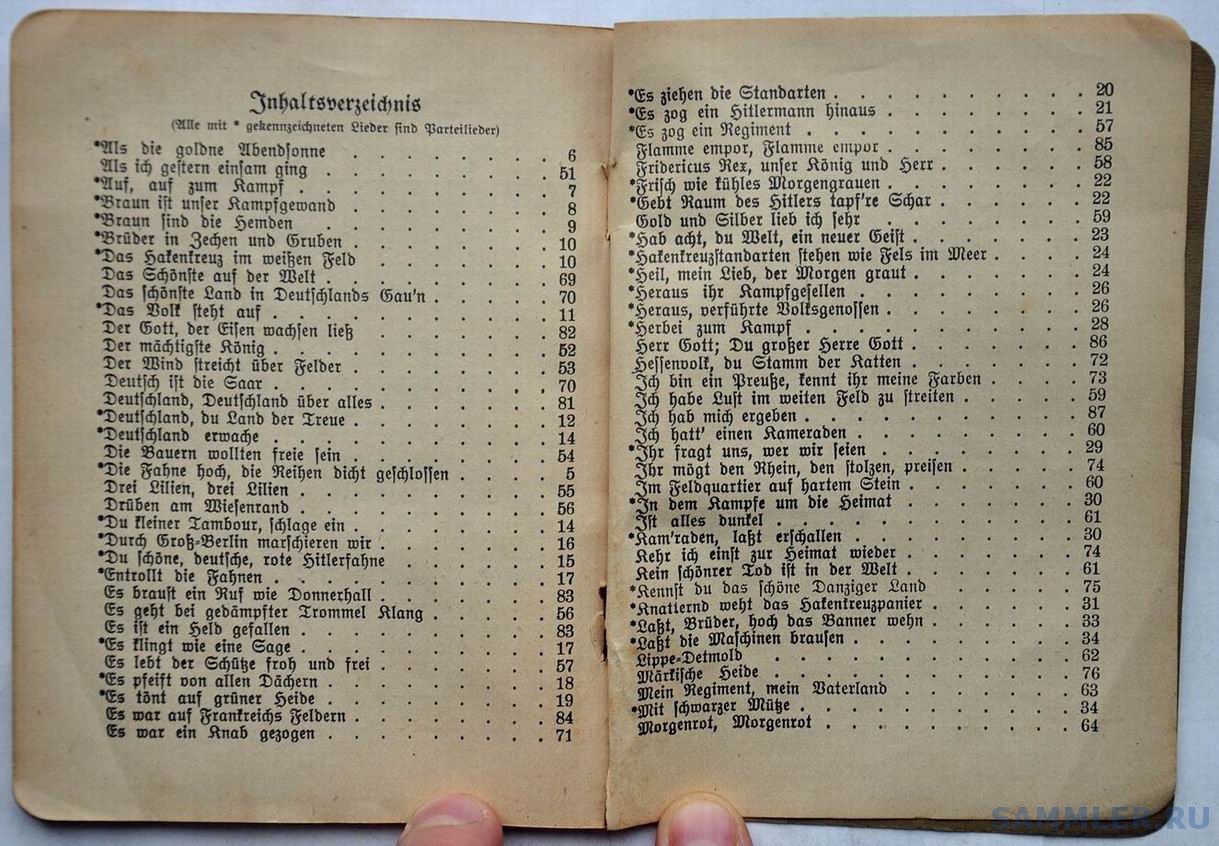 Inhaltsverzeichnis
(Alle mit * gekennzeichneten Lieder sind Parteilieder)
*Als die goldne Abendsonne . . . . . . . 6
Als ich gestern einsam ging . . . . . . . 51
*Auf, auf zum Kampf . . . . . . . . 7
*Braun ist unser Kampfgewand . . . . . . . 8
*Braun sind die Hemden . . . . . . . 9
*Brüder in Zechen und Gruben . . . . . . . 10
*Das Hakenkreuz im weißen Feld . . . . . . 10
Das Schönste auf der Welt . . . . . . . 69
Das schönste Land in Deutschlands Gau'n . . . . . 70
*Das Volk steht auf . . . . . . . . . 11
Der Gott, der Eisen wachsen ließ . . . . . . 82
Der mächtigste König . . . . . . . . 52
Der Wind streicht über Felder . . . . . . 53
Deutsch ist die Saar . . . . . . . . . 70
Deutschland, Deutschland über alles . . . . . . 81
*Deutschland, du Land der Treue . . . . . . . 12
*Deutschland erwache . . . . . . . . . 14
Die Bauern wollten freie sein . . . . . . . 54
*Die Fahne hoch, die Reihen dicht geschlossen . . . . 5
Drei Lilien, drei Lilien . . . . . . . . 55
Drüben am Wiesenrand . . . . . . . . 56
*Du kleiner Tambour, schlage ein . . . . . . . 14
*Durch Groß=Berlin marschieren wir . . . . . . 16
*Du schöne, deutsche, rote Hitlerfahne . . . . . 15
*Entrollt die Fahnen . . . . . . . . . 17
Es braust ein Ruf wie Donnerhall . . . . . . 83
Es geht bei gedämpfter Trommel Klang . . . . . 56
Es ist ein Held gefallen . . . . . . . . 83
*Es klingt wie eine Sage . . . . . . . . 17
Es lebt der Schütze froh und frei . . . . . . 57
*Es pfeift von allen Dächern . . . . . . . 18
*Es tönt auf grüner Heide . . . . . . . 19
Es war auf Frankreichs Feldern . . . . . . 84
Es war ein Knab gezogen . . . . . . . 71
*Es ziehen die Standarten . . . . . . . . 20
*Es zog ein Hitlermann hinaus . . . . . . . 21
*Es zog ein Regiment . . . . . . . . . 57
Flamme empor, Flamme empor . . . . . . . 85
Fridericus Rex, unser König und Herr . . . . . 58
*Frisch wie kühles Morgengrauen . . . . . . . 22
*Gebt Raum des Hitlers tapf're Schar . . . . . 22
Gold und Silber lieb ich sehr . . . . . . . 59
*Hab acht, du Welt, ein neuer Geist . . . . . . 23
*Hakenkreuzstandarten stehen wie Fels im Meer . . . . 24
*Heil, mein Lieb, der Morgen graut . . . . . . 24
*Heraus ihr Kampfgesellen . . . . . . . . 26
*Heraus, verführte Volksgenossen . . . . . . . 26
*Herbei zum Kampf . . . . . . . . . 28
Herr Gott; Du großer Herre Gott . . . . . . 86
Hessenvolk, du Stamm der Katten . . . . . . 72
Ich bin ein Preuße, kennt ihr meine Farben . . . . 73
Ich habe Lust im weiten Feld zu streiten . . . . . 59
Ich hab mich ergeben . . . . . . . . . 87
Ich hatt' einen Kameraden . . . . . . . . 60
*Ihr fragt uns, wer wir seien . . . . . . . 29
Ihr mögt den Rhein, den stolzen, preisen . . . . . 74
Im Feldquartier auf hartem Stein . . . . . . 60
*In dem Kampfe um die Heimat . . . . . . 30
Ist alles dunkel . . . . . . . . . . 61
*Kam'raden, laßt erschallen . . . . . . . . 30
Kehr ich einst zur Heimat wieder . . . . . . 74
Kein schönrer Tod ist in der Welt . . . . . . 61
*Kennst du das schöne Danziger Land . . . . . 75
*Knatternd weht das Hakenkreuzpanier . . . . . . 31
*Laßt, Brüder, hoch das Banner wehn . . . . . . 33
*Laßt die Maschinen brausen . . . . . . . . 34
Lippe=Detmold . . . . . . . . . . 62
Märkische Heide . . . . . . . . . . 76
Mein Regiment, mein Vaterland . . . . . . 63
*Mit schwarzer Mütze . . . . . . . . . 34
Morgenrot, Morgenrot . . . . . . . . 64
SAMMLER.RU